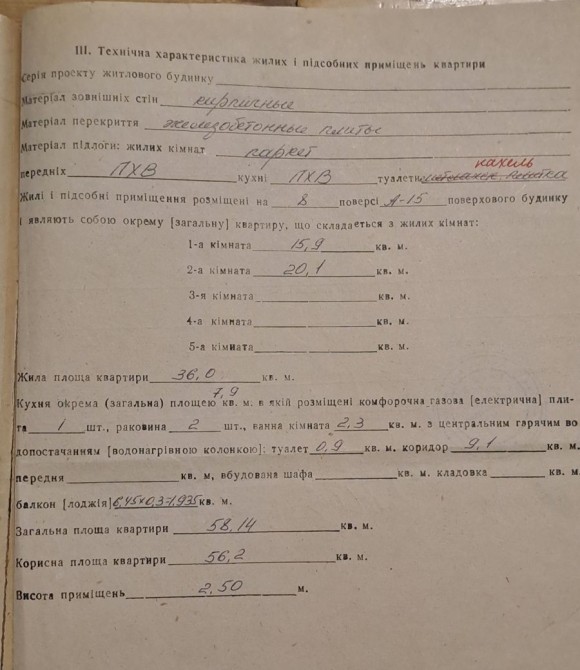 III. Технічна характеристика жилих і підсобних приміщень квартири
Серія проекту житлового будинку
Матеріал зовнішніх стін кирпичные
Матеріал перекриття железобетонные плиты
Матеріал підлоги: жилих кімнат паркет
кахель
передніх ПХВ кухні ПХВ туалети
Жилі і підсобні приміщення розміщені на 8 поверсі А-15 поверхового будинку
і являють собою окрему [загальну] квартиру, що складається з жилих кімнат:
1-а кімната 15,9 кв. м.
2-а кімната 20,1 кв. м.
3-я кімната кв. м.
4-а кімната кв. м.
5-а кімната кв. м.
Жила площа квартири 36,0 кв. м.
7,9
Кухня окрема (загальна) площею кв. м. в якій розміщені комфорочна газова [електрична] пли-
та 1 шт., раковина 2 шт., ванна кімната 2,3 кв. м. з центральним гарячим во
допостачанням [водонагрівною колонкою]; туалет 0,9 кв. м. коридор 9,1 кв. м.
передня кв. м, вбудована шафа кв. м. кладовка кв. м.
балкон [лоджія] 6,45х0,3=1,935 кв. м.
Загальна площа квартири 58,14 кв. м.
Корисна площа квартири 56,2 кв. м.
Висота приміщень 2,50 м.